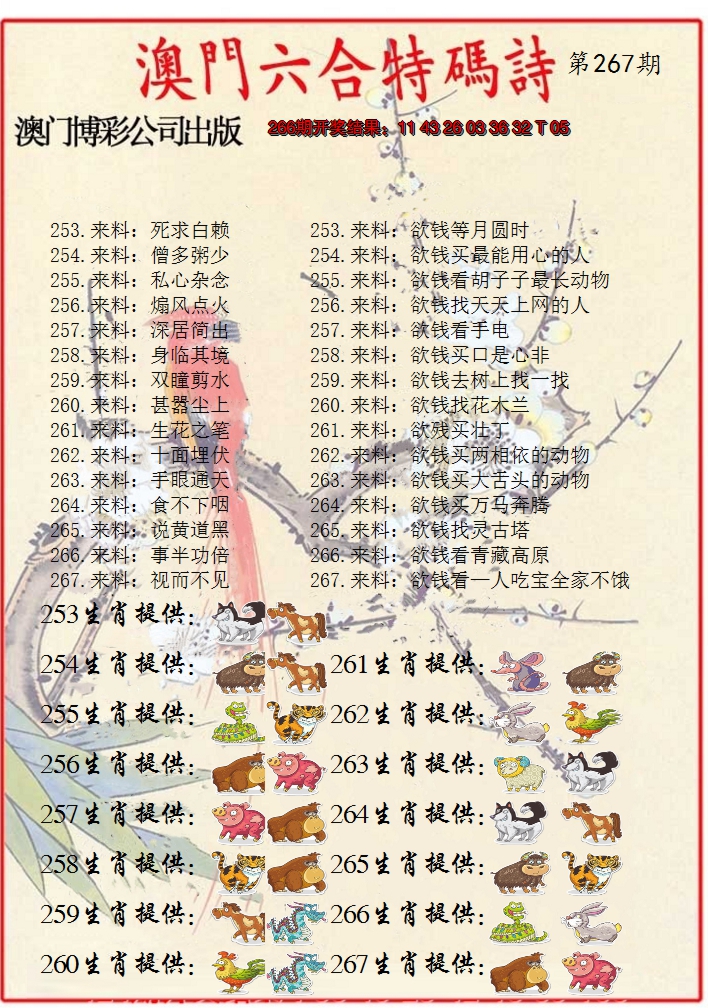 澳門六合特碼詩 第267期
澳门博彩公司出版 266期开奖结果：11 43 26 03 36 32 T 05
253.来料：死求白赖 253.来料：欲钱等月圆时
254.来料：僧多粥少 254.来料：欲钱买最能用心的人
255.来料：私心杂念 255.来料：欲钱看胡子子最长动物
256.来料：煽风点火 256.来料：欲钱找天天上网的人
257.来料：深居简出 257.来料：欲钱看手电
258.来料：身临其境 258.来料：欲钱买口是心非
259.来料：双瞳剪水 259.来料：欲钱去树上找一找
260.来料：甚嚣尘上 260.来料：欲钱找花木兰
261.来料：生花之笔 261.来料：欲残买壮丁
262.来料：十面埋伏 262.来料：欲钱买两相依的动物
263.来料：手眼通天 263.来料：欲钱买大舌头的动物
264.来料：食不下咽 264.来料：欲钱买万马奔腾
265.来料：说黄道黑 265.来料：欲钱找灵古塔
266.来料：事半功倍 266.来料：欲钱看青藏高原
267.来料：视而不见 267.来料：欲钱看一人吃宝全家不饿
253生肖提供：
254生肖提供： 261生肖提供：
255生肖提供： 262生肖提供：
256生肖提供： 263生肖提供：
257生肖提供： 264生肖提供：
258生肖提供： 265生肖提供：
259生肖提供： 266生肖提供：
260生肖提供： 267生肖提供：